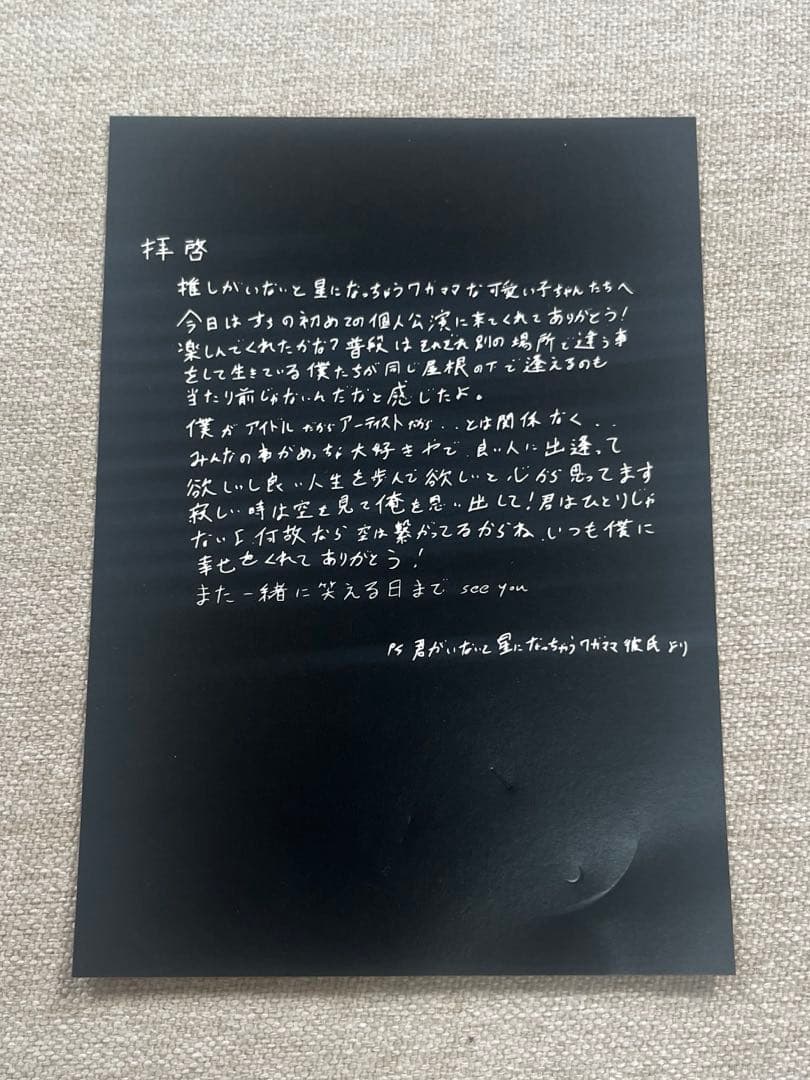 拝啓
推しがいないと星になっちゃうワガママな可愛い子ちゃんたちへ
今日はすちの初めての個人公演に来てくれてありがとう！
楽しんでくれたかな？普段はそれぞれ別の場所で違う事
をして生きている僕たちが同じ屋根の下で逢えるのも
当たり前じゃないんだなと感じたよ。
僕がアイドルだからアーティストだから..とは関係なく..
みんなの事がめっちゃ大好きやで、良い人に出逢って
欲しいし良い人生を歩んで欲しいと心から思ってます
寂しい時は空を見て俺を思い出して！君はひとりじゃ
ないよ何故なら空は繋がってるからね、いつも僕に
幸せをくれてありがとう！
また一緒に笑える日まで see you
PS 君がいないと星になっちゃうワガママ彼氏より